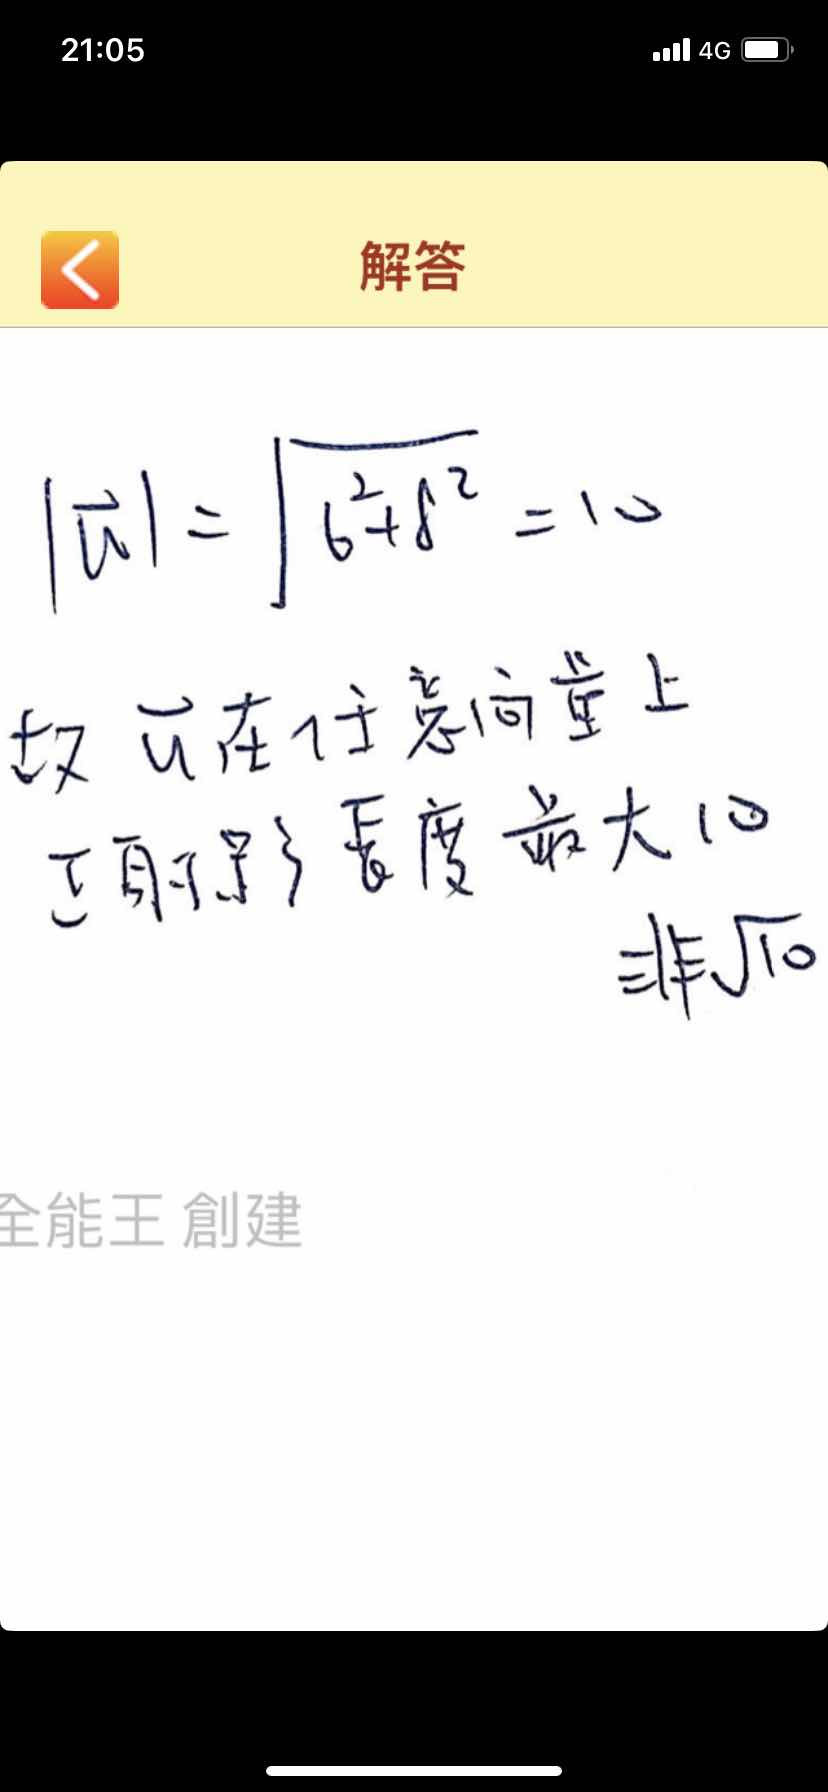 21:05
4G
解答
|u⃗| = √6²+8² = 10
故 u⃗ 在任意向量上
正射影長度最大10
非√10
全能王 創建